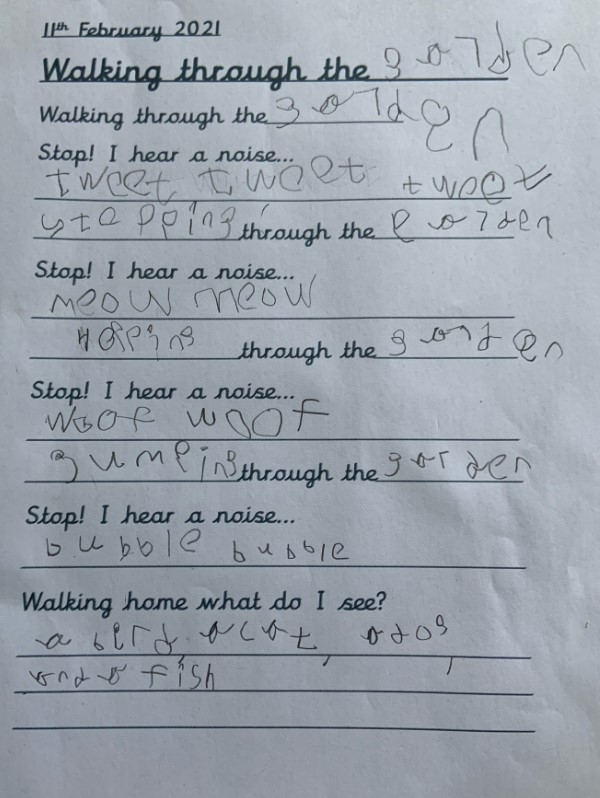 11th February 2021
Walking through the garden
Walking through the garden
Stop! I hear a noise...
tweet tweet tweet
stopping through the garden
Stop! I hear a noise...
meow meow
Hoping through the garden
Stop! I hear a noise...
woof woof
gumping through the garden
Stop! I hear a noise...
bubble bubble
Walking home what do I see?
a berd, a cat, a dog,
and a fish